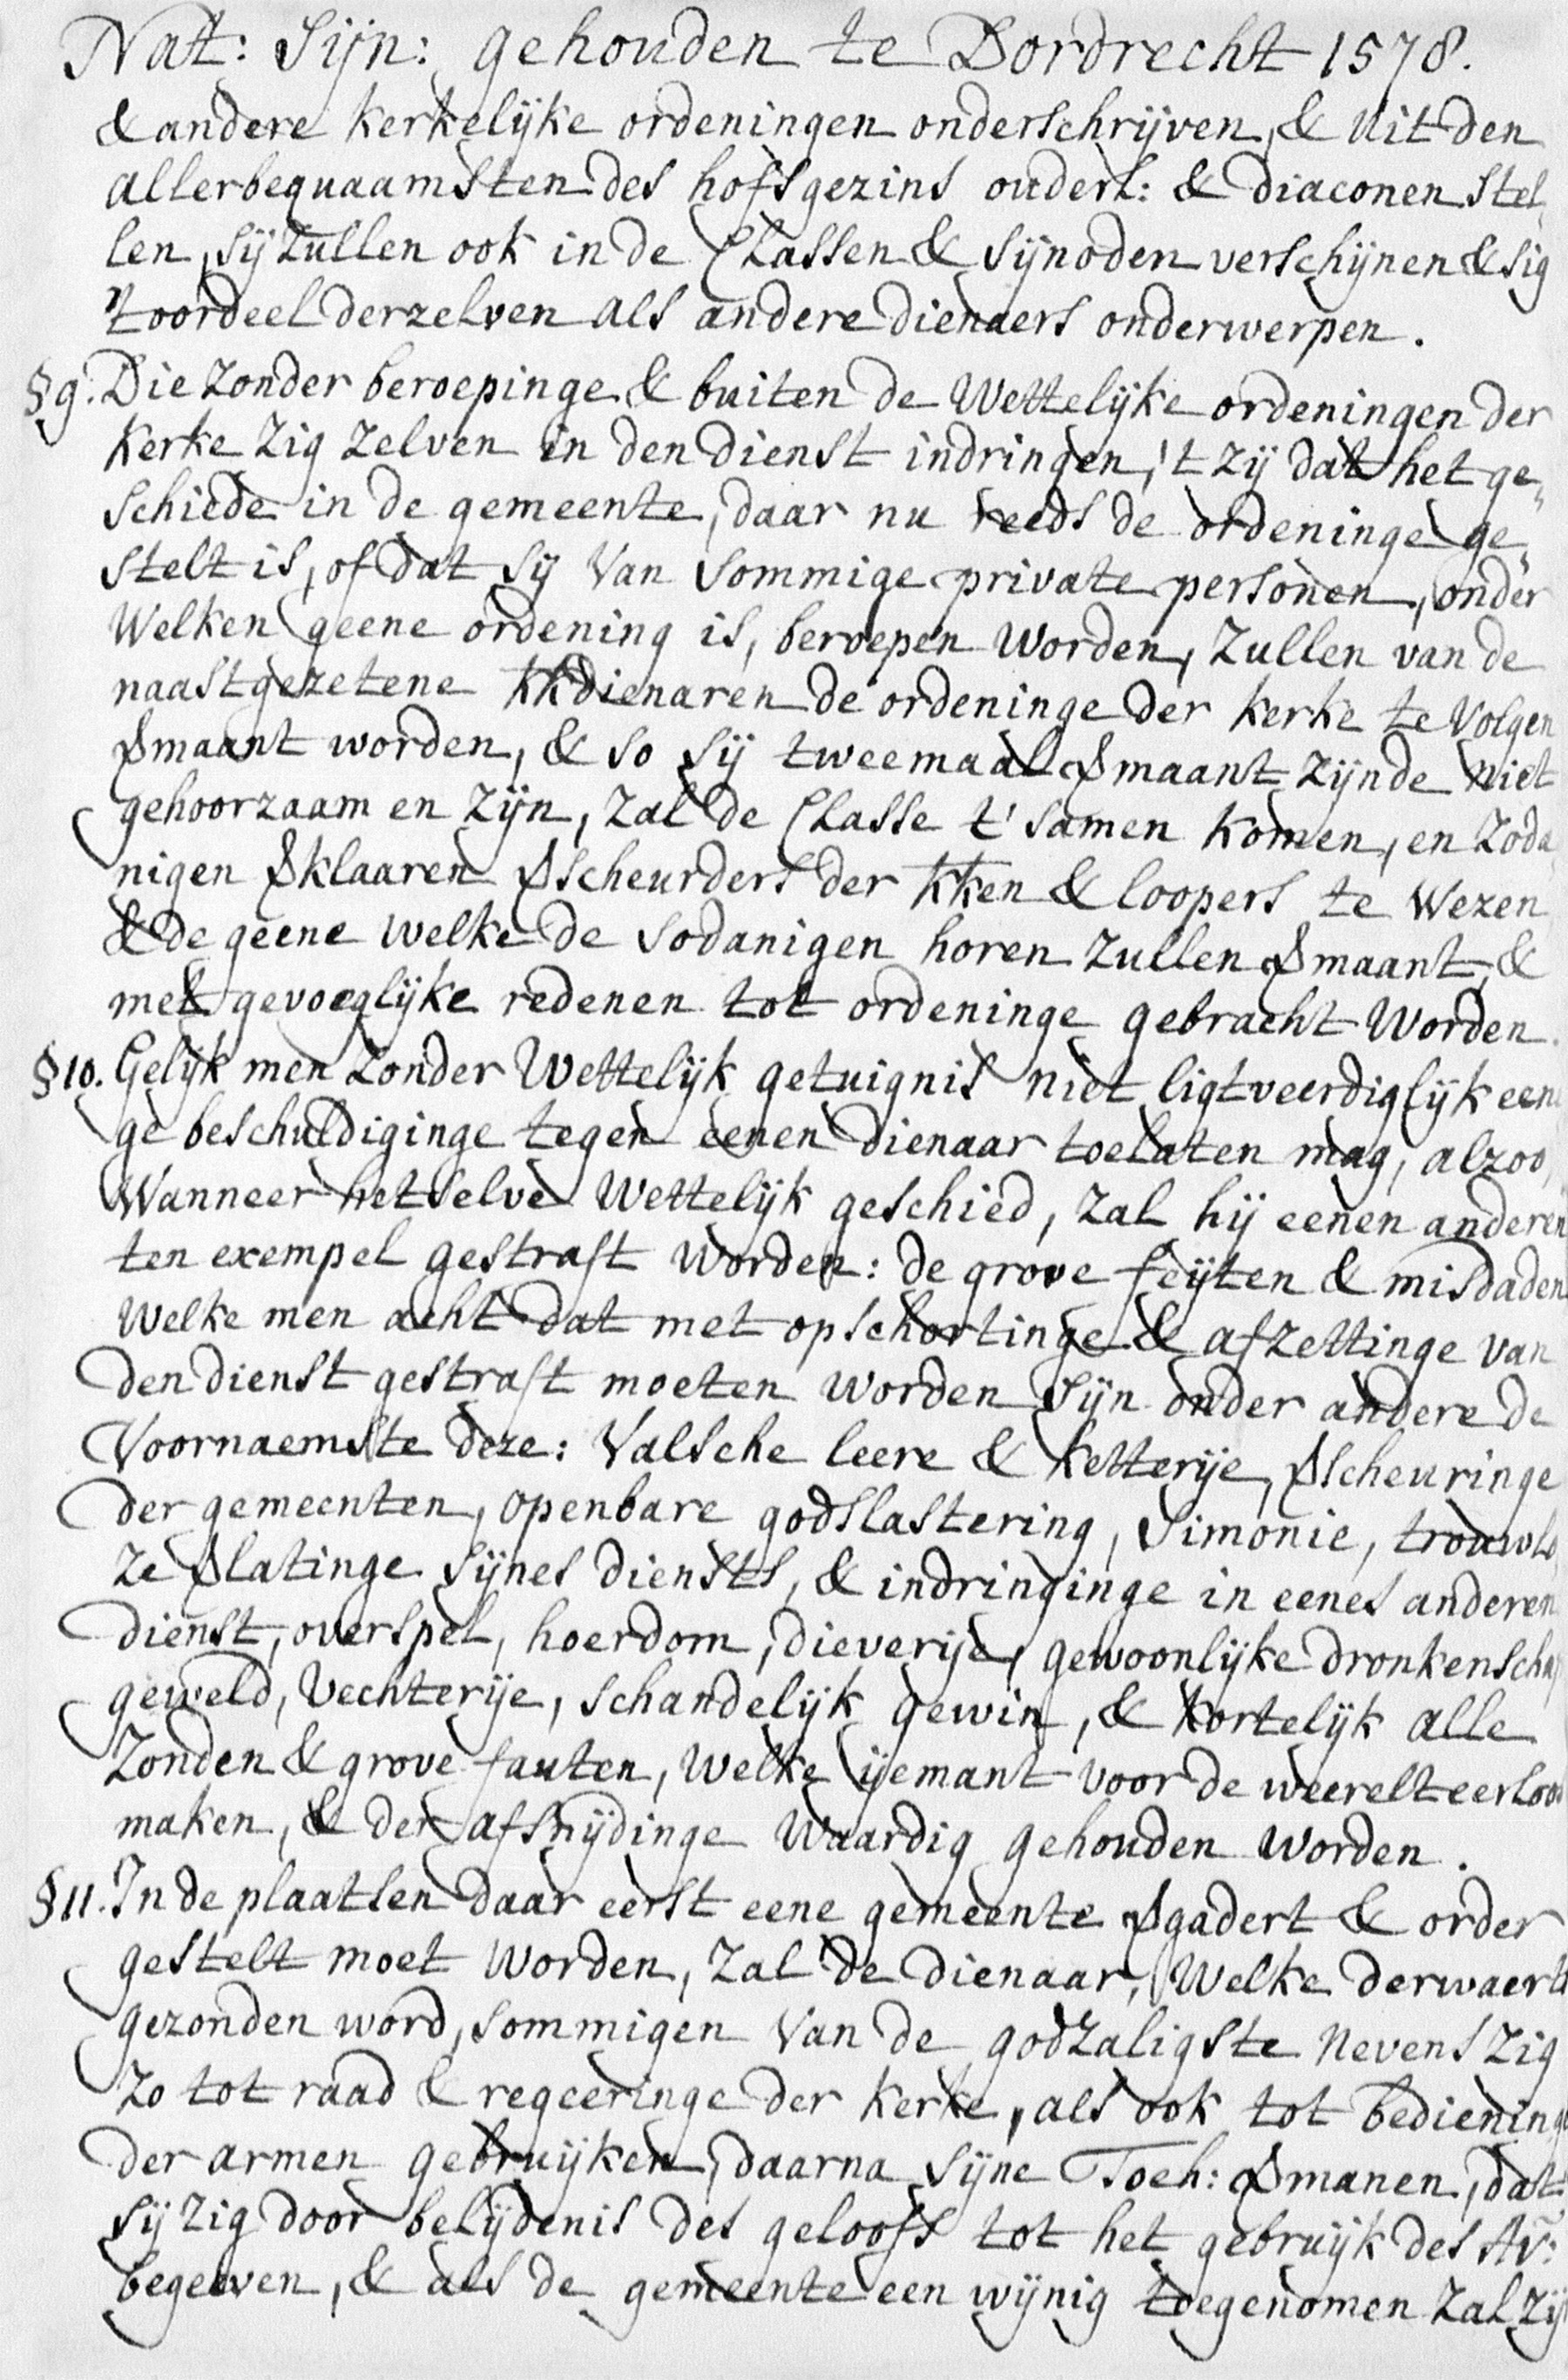 Nat: Sijn: gehouden te Dordrecht 1578.
& andere kerkelijke ordeningen onderschrijven, & uit den
allerbequaamsten des hofsgezins ouderl: & diaconen stel,
len, sij zullen ook in de Classen & Sijnoden verschijnen & sig
't oordeel derzelven als andere dienaers onderwerpen.
§9. Die zonder beroepinge & buiten de Wettelijke ordeningen der
Kerke zig zelven in den dienst indringen, 't zij dat het ge,,
schiede in de gemeente, daar nu reeds de ordeninge ge,,
stelt is, of dat sij van sommige private personen, onder
Welken geene ordening is, beroepen worden, zullen van de
naastgezetene KKdienaren de ordeninge der kerke te volgen
&maant worden, & so sij tweemaal &maant zijnde niet
gehoorzaam en zijn, zal de Classe t'samen komen, en zoda
nigen &klaaren &scheurders der KKen & loopers te wezen
& de geene welke de sodanigen horen zullen &maant, &
met gevoeglijke redenen tot ordeninge gebracht worden.
§10. Gelijk men zonder Wettelijk getuignis niet ligtveerdiglijk eeni
ge beschuldiginge tegen eenen dienaar toelaten mag, alzoo,
Wanneer hetselve Wettelijk geschied, zal hij eenen anderen
ten exempel gestraft worden: de grove feijten & misdaden
welke men acht dat met opschortinge & afzettinge van
den dienst gestraft moeten worden sijn onder andere de
Voornaemste deze: Valsche leere & ketterije, &scheuringe
der gemeenten, openbare godslastering, Simonie, trouwlo
ze &latinge sijnes diensts, & indringinge in eenes anderen
dienst, overspel, hoerdom, dieverije, gewoonlijke dronkenschap
geweld, Vechterije, schandelijk gewin, & kortelijk alle
Zonden & grove fauten, welke ijemant voor de weerelt eerloos
maken, & der afsnijdinge waardig gehouden worden.
§11. In de plaatsen daar eerst eene gemeente &gadert & order
gestelt moet worden, zal de dienaar, Welke derwaerts
gezonden word, sommigen van de godzaligste nevens zig
zo tot raad & regeeringe der kerke, als ook tot bedieninge
der armen gebruijken, daarna sijne Toeh: &manen, dat
sij zig door belijdenis des geloofs tot het gebruijk des Av:
begeeven, & als de gemeente een wijnig toegenomen zal zijn